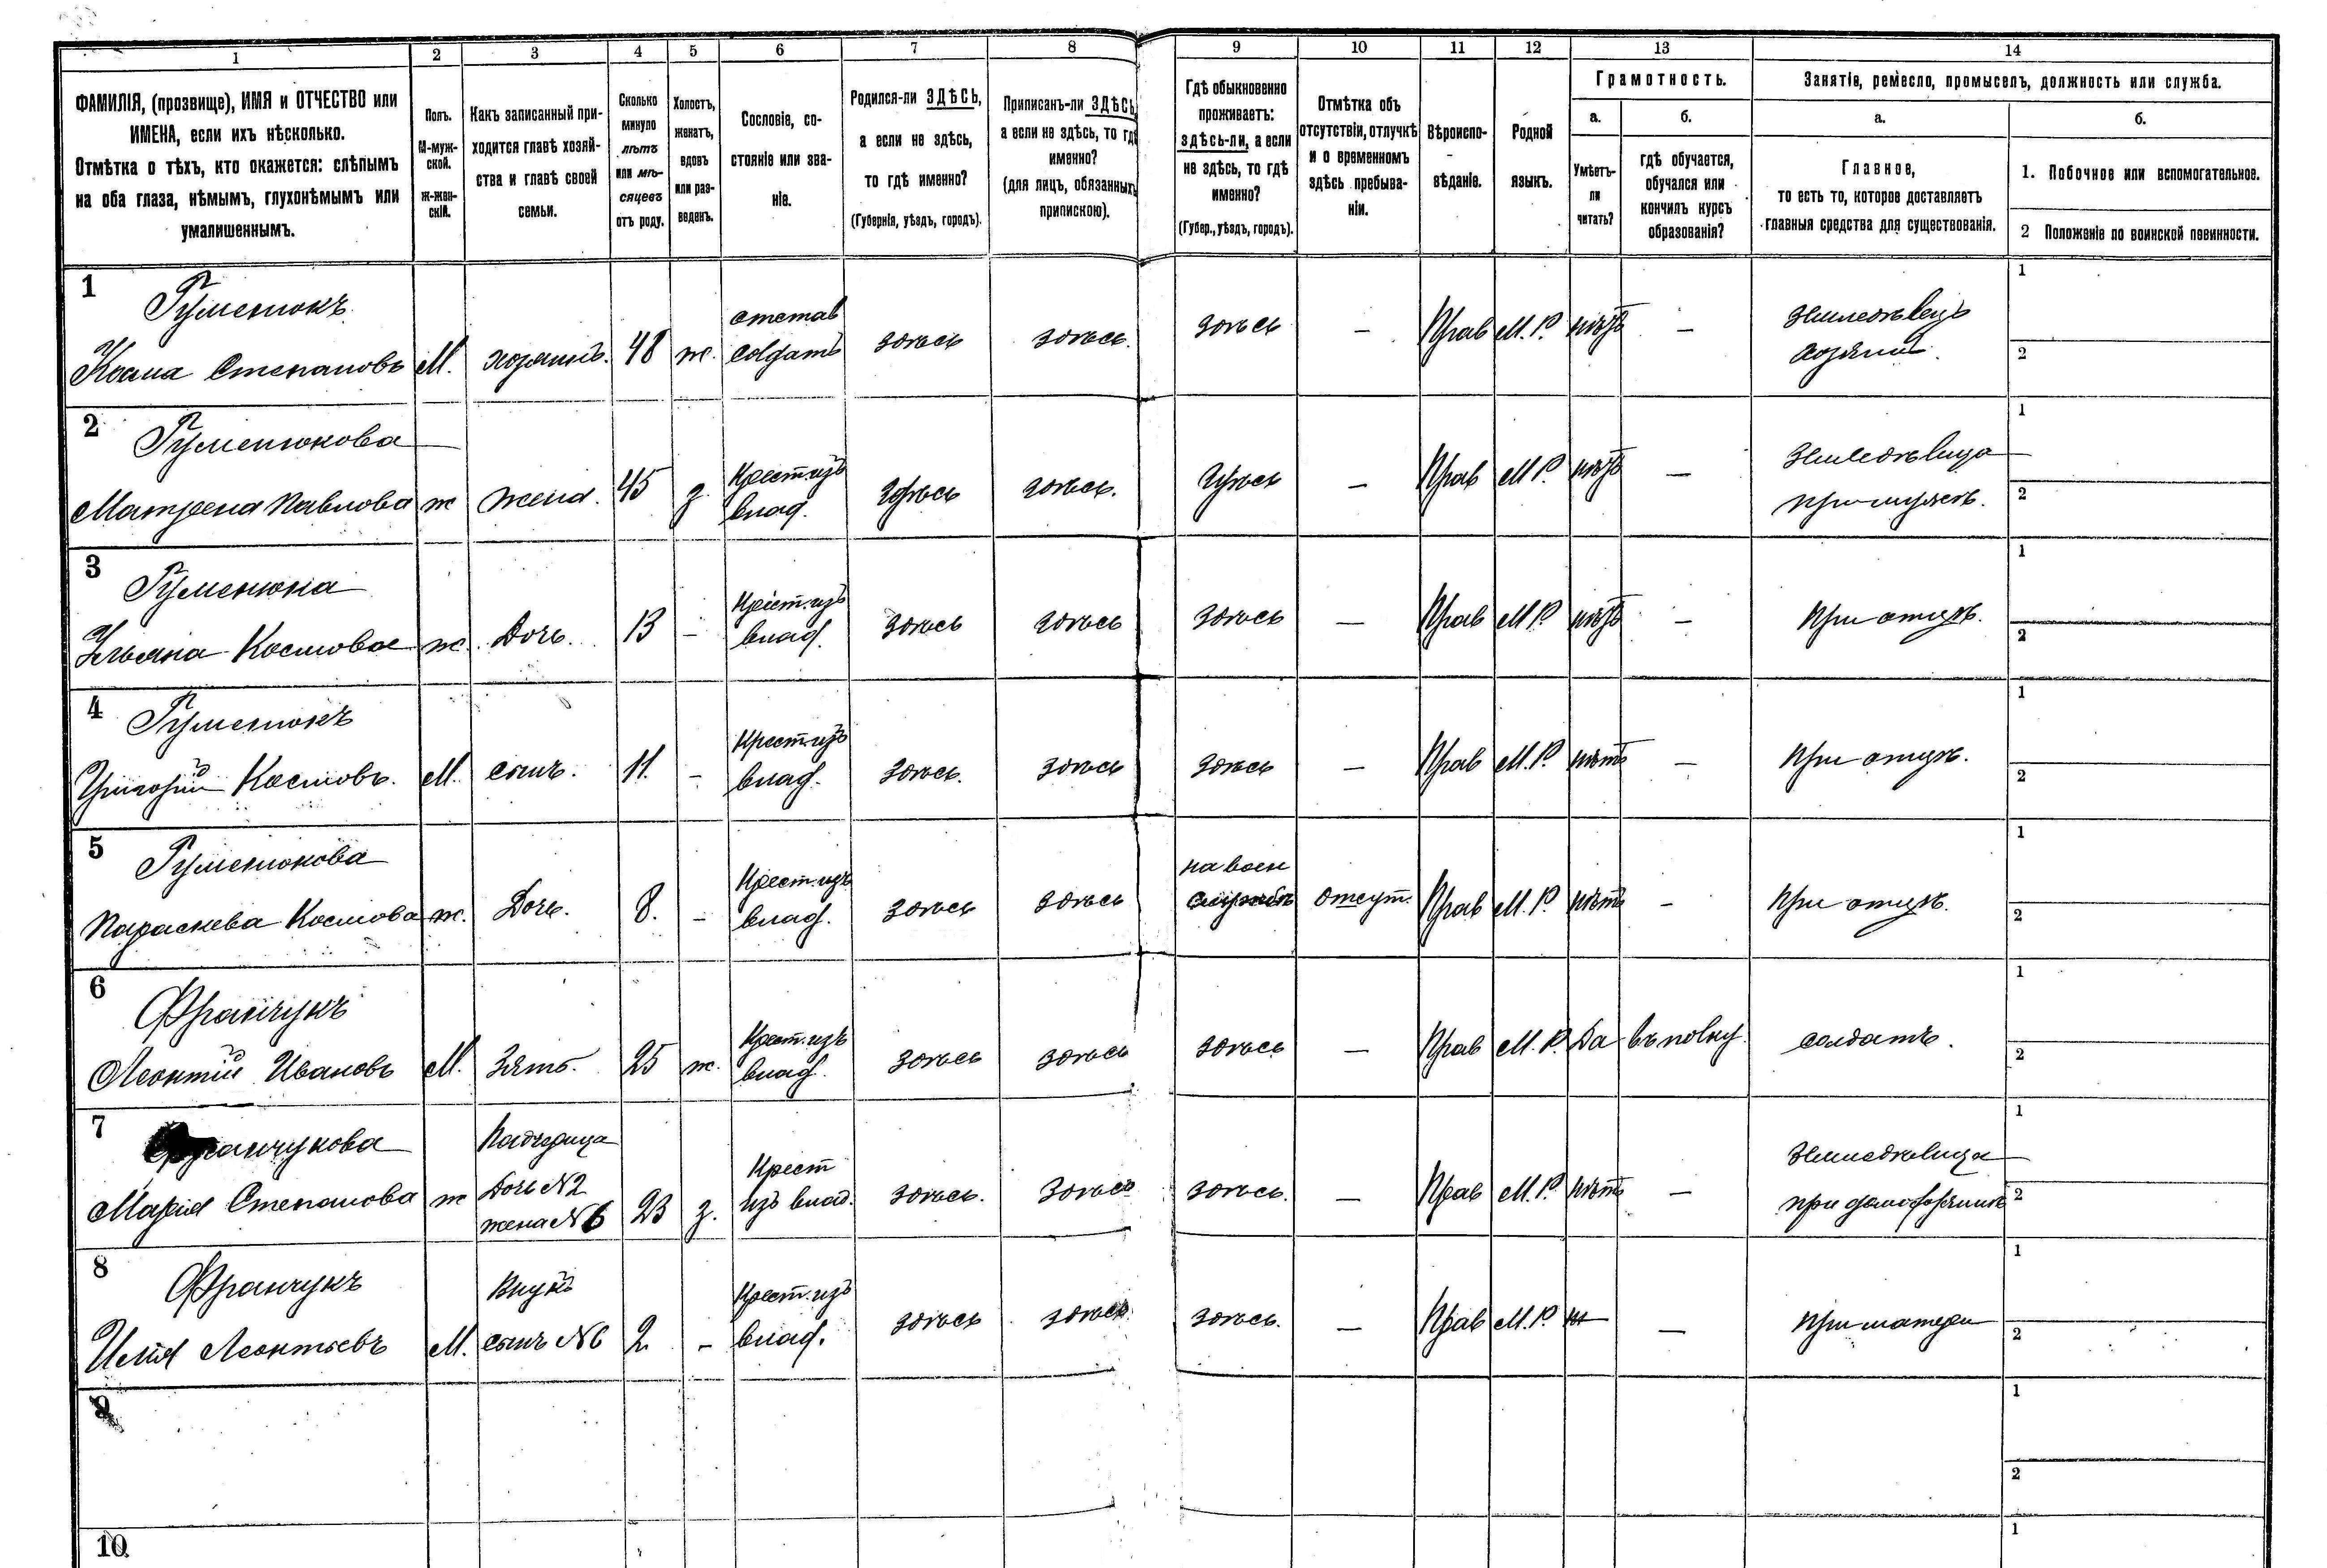 1 2 3 4 5 6 7 8 9 10 11 12 13 14
ФАМИЛІЯ, (прозвище), ИМЯ и ОТЧЕСТВО или
ИМЕНА, если ихъ нѣсколько.
Отмѣтка о тѣхъ, кто окажется: слѣпымъ
на оба глаза, нѣмымъ, глухонѣмымъ или
умалишеннымъ.
Полъ.
М-муж-
ской.
ж-жен-
скій.
Какъ записанный при-
ходится главѣ хозяй-
ства и главѣ своей
семьи.
Сколько
минуло
лѣтъ
или мѣ-
сяцевъ
отъ роду.
Холостъ,
женатъ,
вдовъ
или раз-
веденъ.
Сословіе, со-
стояніе или зва-
ніе.
Родился-ли ЗДѢСЬ,
а если не здѣсь,
то гдѣ именно?
(Губернія, уѣздъ, городъ).
Приписанъ-ли ЗДѢСЬ,
а если не здѣсь, то гдѣ
именно?
(для лицъ, обязанныхъ
припискою).
Гдѣ обыкновенно
проживаетъ:
здѣсь-ли, а если
не здѣсь, то гдѣ
именно?
(Губер., уѣздъ, городъ).
Отмѣтка объ
отсутствіи, отлучкѣ
и о временномъ
здѣсь пребыва-
ніи.
Вѣроиспо-
вѣданіе.
Родной
языкъ.
Грамотность.
а.
Умѣетъ-
ли
читать?
б.
гдѣ обучается,
обучался или
кончилъ курсъ
образованія?
Занятіе, ремесло, промыселъ, должность или служба.
а.
Главное,
то есть то, которое доставляетъ
главныя средства для существованія.
б.
1. Побочное или вспомогательное.
2 Положеніе по воинской повинности.
1
Гуменюкъ
Козма Степановъ М. хозяинъ. 48 ж.
отстав
солдатъ
здѣсь здѣсь. здѣсь — Прав М.Р. нѣтъ —
Земледѣлецъ
хозяинъ.
1
2
2
Гуменюкова
Матрена Павлова ж жена. 45 з.
Крест. изъ
влад.
здѣсь здѣсь. здѣсь — Прав М.Р. нѣтъ —
Земледѣлица
при мужѣ.
1
2
3
Гуменюкова
Ульяна Космова ж. Дочь. 13 -
Крест. изъ
влад.
здѣсь здѣсь здѣсь — Прав М.Р. нѣтъ —
при отцѣ.
1
2
4
Гуменюкъ
Григорій Космовъ. М. сынъ. 11. -
Крест. изъ
влад.
здѣсь. здѣсь здѣсь — Прав М.Р. нѣтъ —
при отцѣ.
1
2
5
Гуменюкова
Параскева Космова ж. Дочь. 8. -
Крест. изъ
влад.
здѣсь здѣсь
на воен
службѣ
отсут. Прав М.Р. нѣтъ -
при отцѣ.
1
2
6
Франчукъ
Леонтій Ивановъ М. Зять. 25 ж.
Крест. изъ
влад.
здѣсь здѣсь здѣсь — Прав М.Р. Да въ полку
солдатъ.
1
2
7
Франчукова
Марія Степанова ж
Падчерица
Дочь №2
жена №6
23 з.
Крест
изъ влад.
здѣсь. здѣсь здѣсь. — Прав М.Р. нѣтъ —
Земледѣлица
1
2
8
Франчукъ
Илія Леонтьевъ М.
Внукъ
сынъ №6
2. -
Крест. изъ
влад.
здѣсь здѣсь здѣсь. — Прав М.Р. —
при матери
1
2
9
1
2
10
1